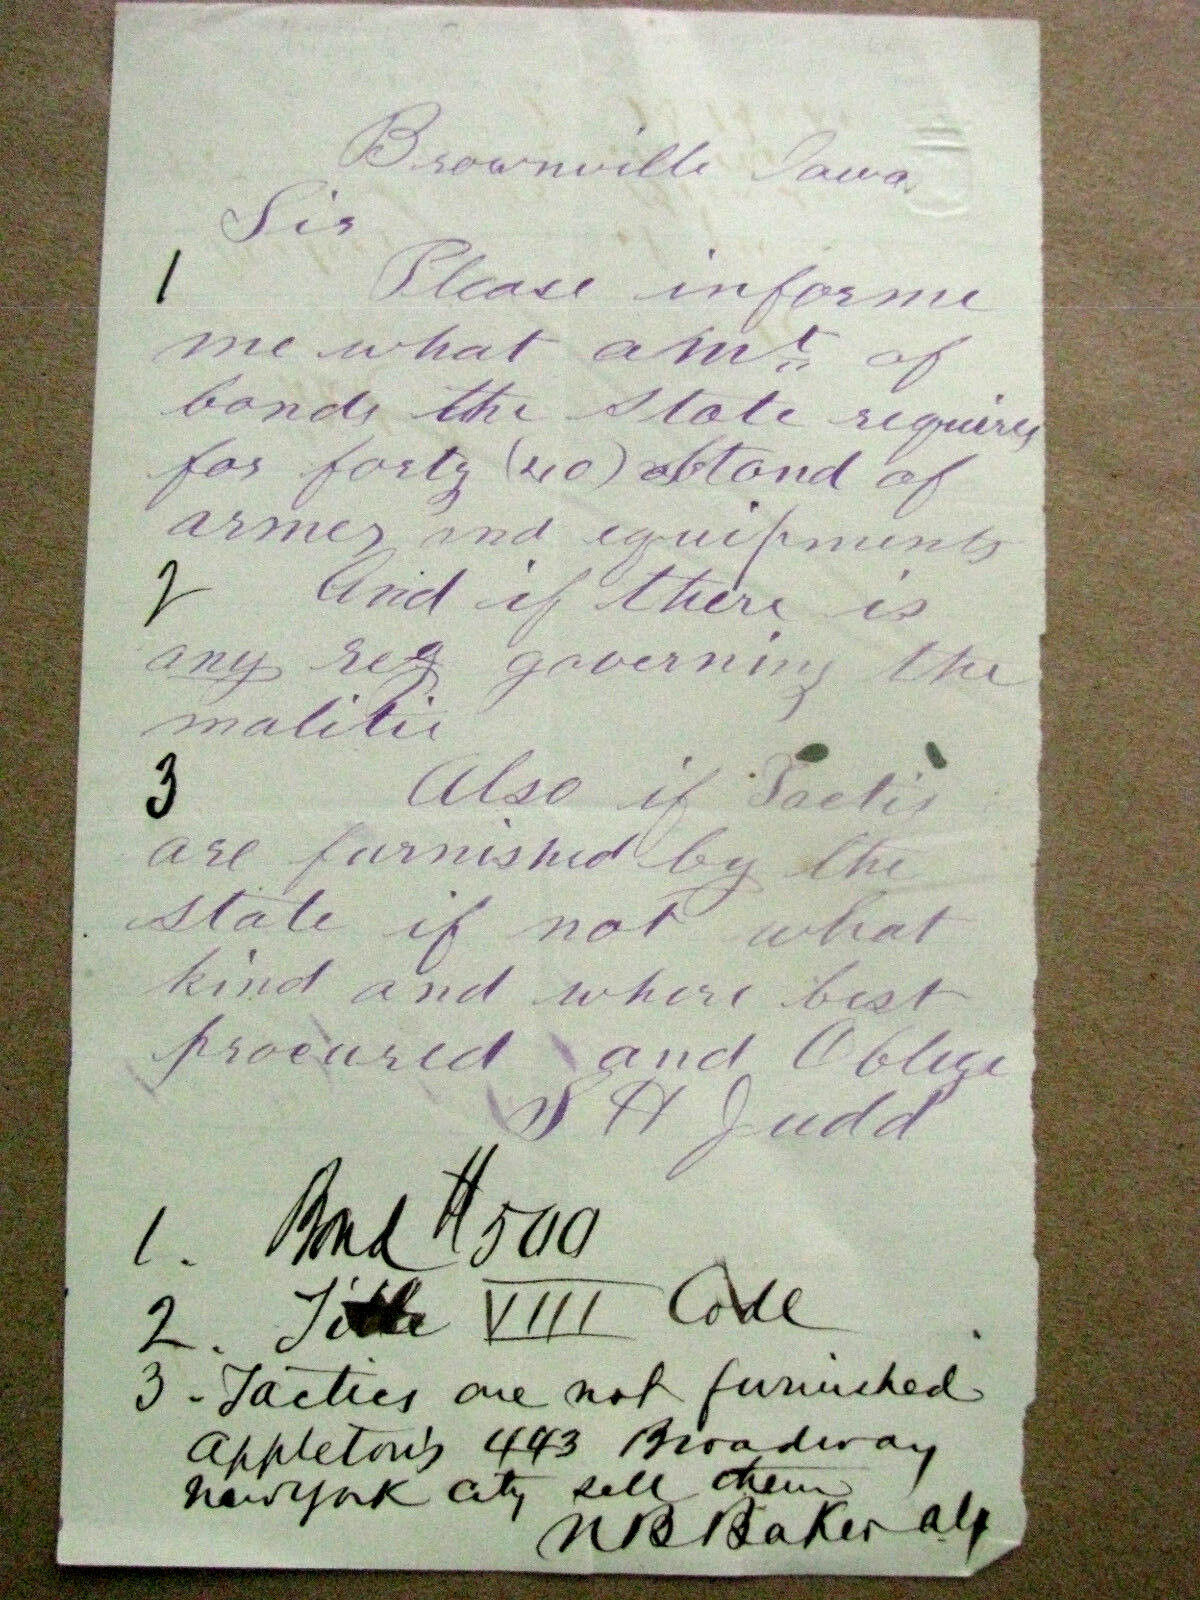 Brownville Iowa
Sir
1 Please informe
me what amt. of
bonds the State requires
for forty (40) Stand of
armes and equipments
2 And if there is
any reg governing the
malitie
3 Also if Tactis
are furnished by the
state if not what
kind and where best
procured and Oblige
S H Judd
1. Bond $500
2. Title VIII Code
3 - Tactics are not furnished
Appleton's 443 Broadway
New York City sell them
N B Baker